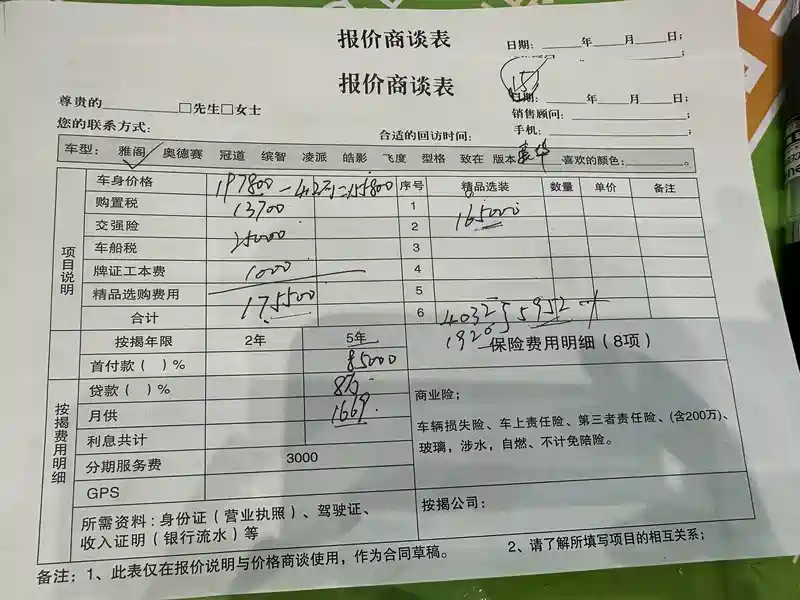 报价商谈表
日期：____年____月____日；
报价商谈表
15
日期：____年____月____日；
尊贵的________□先生□女士
销售顾问：________；
您的联系方式：
合适的回访时间：
手机：________；
车型： 雅阁 奥德赛 冠道 缤智 凌派 皓影 飞度 型格 致在 版本 豪华 喜欢的颜色：________。
项目说明
车身价格 197800-4.2万=155800 序号 精品选装 数量 单价 备注
购置税 13700 1
交强险 2 165000
车船税 5000 3
牌证工本费 1000 4
精品选购费用 5
合计 175500 6 4032 5952
1920
按揭年限 2年 5年 保险费用明细（8项）
首付款（ ）% 85000
按揭费用明细
贷款（ ）% 8万
月供 1669
利息共计
分期服务费 3000
GPS
商业险；
车辆损失险、车上责任险、第三者责任险、(含200万)、
玻璃，涉水，自燃、不计免陪险。
所需资料：身份证（营业执照）、驾驶证、
收入证明（银行流水）等
按揭公司：
备注：1、此表仅在报价说明与价格商谈使用，作为合同草稿。 2、请了解所填写项目的相互关系；